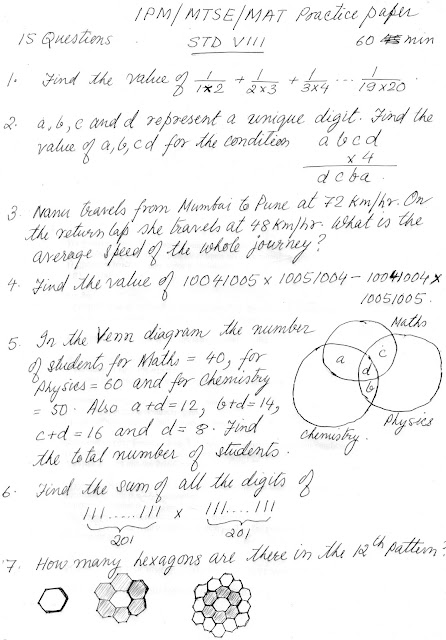 IPM/MTSE/MAT Practice paper
15 Questions STD VIII 60 45 min
1. Find the value of 1/1x2 + 1/2x3 + 1/3x4 ... 1/19x20
2. a, b, c and d represent a unique digit. Find the
value of a, b, c, d for the condition a b c d
x 4
d c b a
3. Nanu travels from Mumbai to Pune at 72 km/hr. On
the return lap she travels at 48 km/hr. What is the
average speed of the whole journey?
4. Find the value of 10041005 x 10051004 - 10041004 x
10051005.
5. In the Venn diagram the number
of students for Maths = 40, for
Physics = 60 and for Chemistry
= 50. Also a+d=12, b+d=14,
c+d=16 and d=8. Find
the total number of students.
Maths
a c
d
b
Chemistry. Physics
6. Find the sum of all the digits of
111.....111 x 111.....111
201 201
7. How many hexagons are there in the 12th pattern?